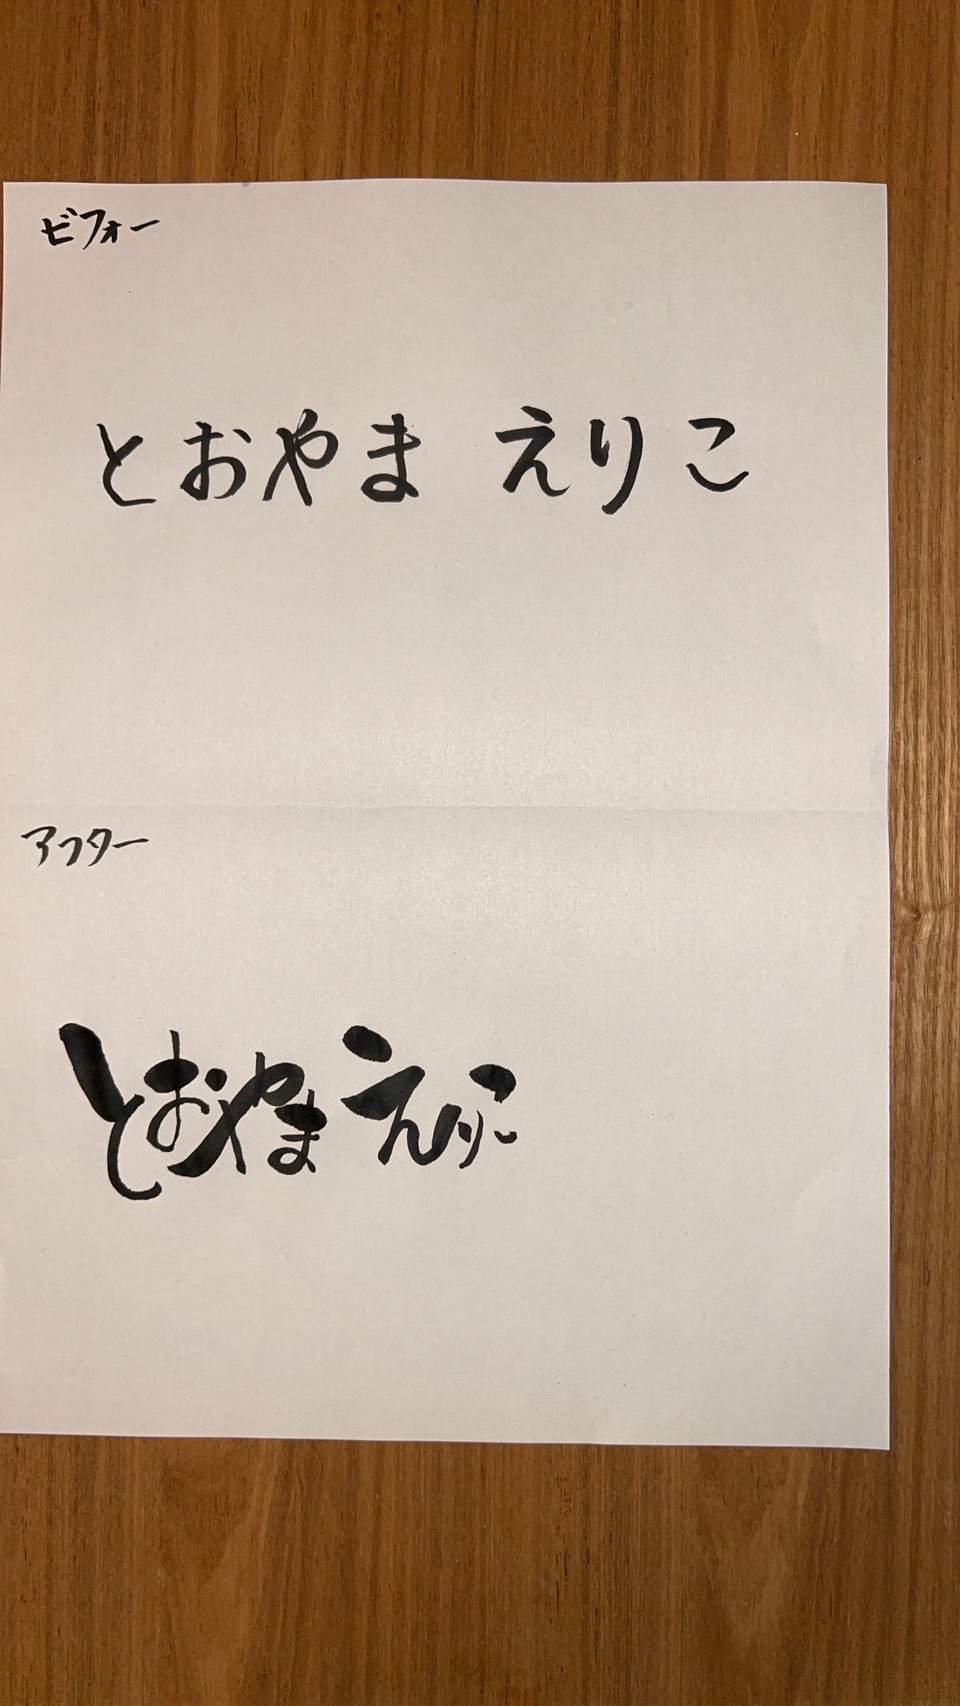 ビフォー
とおやま えりこ
アフター
とおやま えりこ